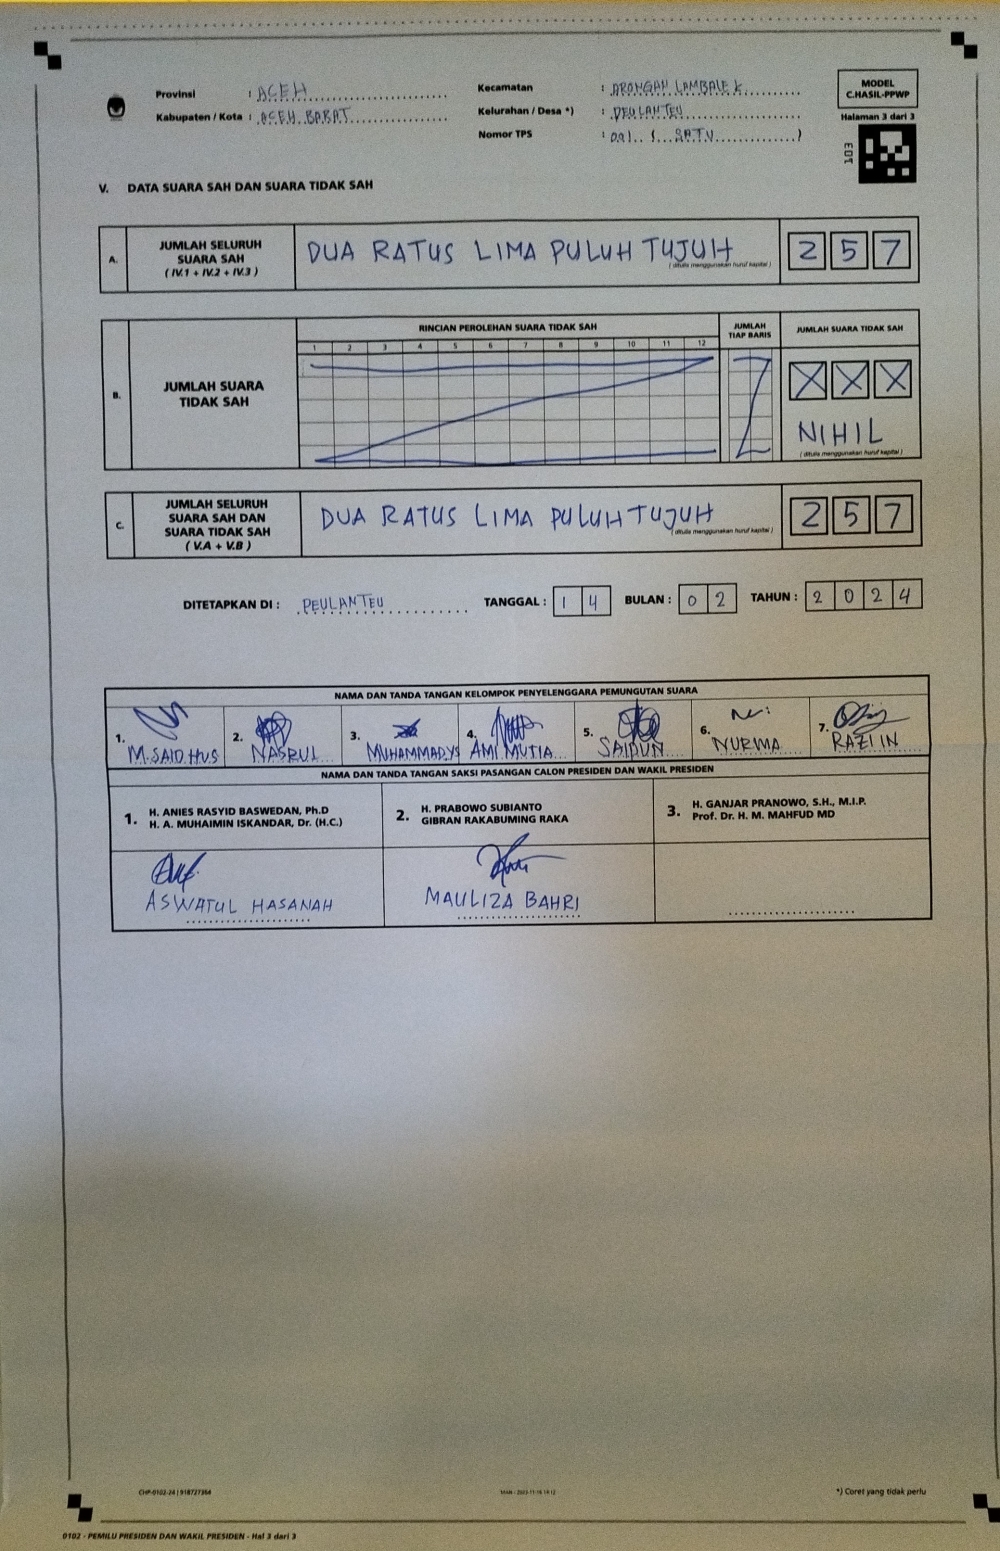 Provinsi : ACEH
Kabupaten / Kota : ACEH BARAT
Kecamatan : ARONGAN LAMBALEK
Kelurahan / Desa *) : PEULANTEU
Nomor TPS : 001 ( SATU )
MODEL
C.HASIL-PPWP
Halaman 3 dari 3
E01
V. DATA SUARA SAH DAN SUARA TIDAK SAH
A. JUMLAH SELURUH
SUARA SAH
( IV.1 + IV.2 + IV.3 )
DUA RATUS LIMA PULUH TUJUH
( ditulis menggunakan huruf kapital )
2 5 7
B. JUMLAH SUARA
TIDAK SAH
RINCIAN PEROLEHAN SUARA TIDAK SAH
1 2 3 4 5 6 7 8 9 10 11 12
JUMLAH
TIAP BARIS
JUMLAH SUARA TIDAK SAH
X X X
NIHIL
( ditulis menggunakan huruf kapital )
C. JUMLAH SELURUH
SUARA SAH DAN
SUARA TIDAK SAH
( V.A + V.B )
DUA RATUS LIMA PULUH TUJUH
( ditulis menggunakan huruf kapital )
2 5 7
DITETAPKAN DI : PEULANTEU TANGGAL : 1 4 BULAN : 0 2 TAHUN : 2 0 2 4
NAMA DAN TANDA TANGAN KELOMPOK PENYELENGGARA PEMUNGUTAN SUARA
1. M. SAID HUS
2. NASRUL
3. MUHAMMAD YS
4. AMI MUTIA
5. SAIPUN
6. NURMA
7. RAZI IN
NAMA DAN TANDA TANGAN SAKSI PASANGAN CALON PRESIDEN DAN WAKIL PRESIDEN
1. H. ANIES RASYID BASWEDAN, Ph.D
H. A. MUHAIMIN ISKANDAR, Dr. (H.C.)
2. H. PRABOWO SUBIANTO
GIBRAN RAKABUMING RAKA
3. H. GANJAR PRANOWO, S.H., M.I.P.
Prof. Dr. H. M. MAHFUD MD
ASWATUL HASANAH
MAULIZA BAHRI
CHP-0102-24 | 918727364
*) Coret yang tidak perlu
0102 - PEMILU PRESIDEN DAN WAKIL PRESIDEN - Hal 3 dari 3